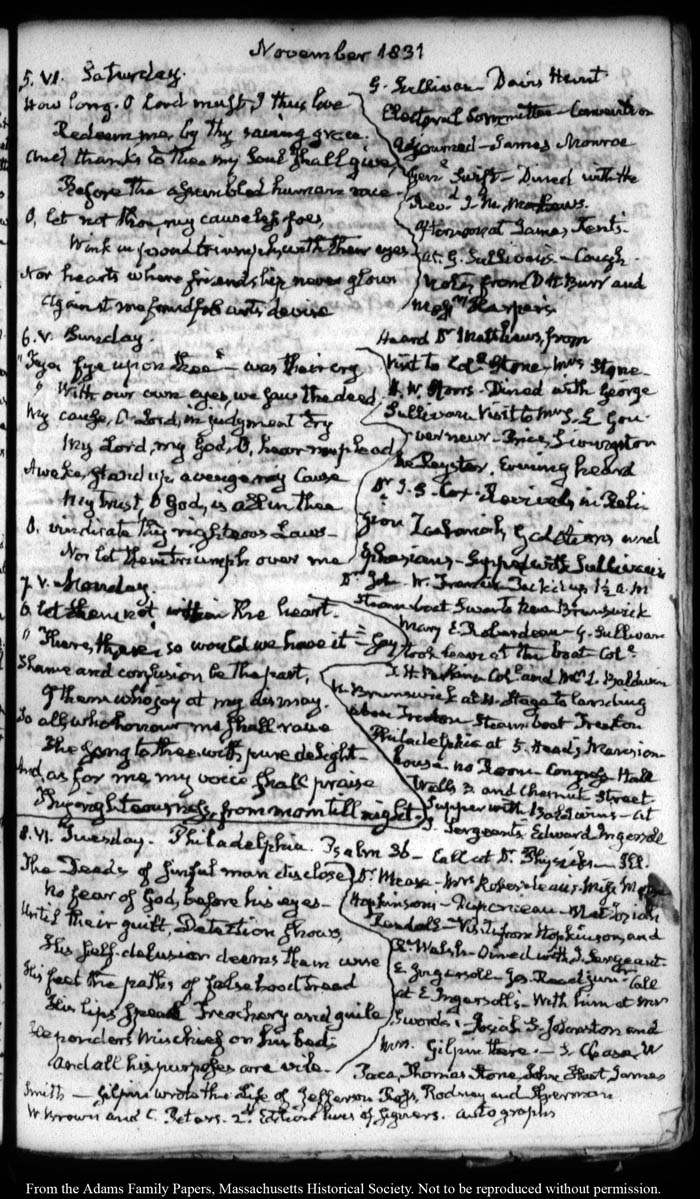 November 1831
5. VI. Saturday.
How long. O Lord must I thus love
Redeem me, by thy saving grace.
And thanks to thee my Soul shall give,
Before the assembled human race.
O, let not thou, my causeless foes,
Wink in proud triumph, with their eyes
Nor hearts where friendship never glows
Against me fraudful arts devise
G. Sullivan Davis Hunt
Electoral Committee Convention
Adjourned James Monroe
Genl. Swift Dined with the
Revd. J. M. Mathews.
Afternoon at James Kent's.
at G. Sullivan's Cough.
Notes from D H Burr and
Harpers
6. V. Sunday.
"Fye fye upon thee" was their cry
"With our own eyes, we saw the deed
My cause, O Lord, in judgment try
My Lord, my God, O, hear me plead
Awake, stand up avenge my cause
My trust, O God, is all in thee
O, vindicate thy righteous Laws
Nor let them triumph over me
Heard Dr Matthews, from
Visit to Coll. Stone Mrs Stone
Dined with George
Sullivan Visit to Mrs S. L Gou-
verneur Price, Livingston
Evening heard
Dr S. Cox Revivals in Reli-
gion Zechariah, Galatians and
Ephesians Supped with Sullivan's
Dr. John W. Francis Pack'd up 1½ a.m
7. V. Monday.
O let them not within the heart.
"There, there, so would we have it" Say
Shame and confusion be the part,
Of them who joy at my dismay.
So all, who honour me shall raise
The song to thee with pure delight
And as for me, my voice shall praise
Thy righteousness, from morn till night.
Steam boat Swan to New Brunswick
Mary E. Roberdeau G. Sullivan
took leave at the boat Coll.
J. H. Perkins Coll. and Mrs L. Baldwin
N. Brunswick at Stage to landing
above Trenton Steam boat Trenton
Philadelphia at 5. Head's Mansion
house no Room Congress Hall
and Chesnut Street.
Supper with Baldwins at
J. Sergeants Edward Ingersoll
8. VI. Tuesday. Philadelphia. Psalm 36 Call at Dr. Physick's Ill.
The Deeds of sinful man disclose
No fear of God, before his eyes
Until their guilt, Detection shows,
His self-delusion deems them wise
His feet the paths of falsehood tread
His lips speak Treachery and guile
He ponders Mischief on his bed
And all his purposes are vile
Dr. Mease Mrs Roberdeau. Miss
Hopkinson Duponceau
Visit from Hopkinson, and
R. Walsh Dined with J. Sergeant.
E. Ingersoll Jos. Reed Call
at E Ingersoll's With him at Mrs
Sword's Josiah S. Johnston and
Mrs. Gilpin there. S. Chase, W
Paca, Thomas Stone, John Hart, James
Smith Gilpin wrote the Life of Jefferson Ross, Rodney and Sherman.
W. Brown and C. Peters. 2d. Edition lives of Signers. autographs
From the Adams Family Papers, Massachusetts Historical Society. Not to be reproduced without permission.